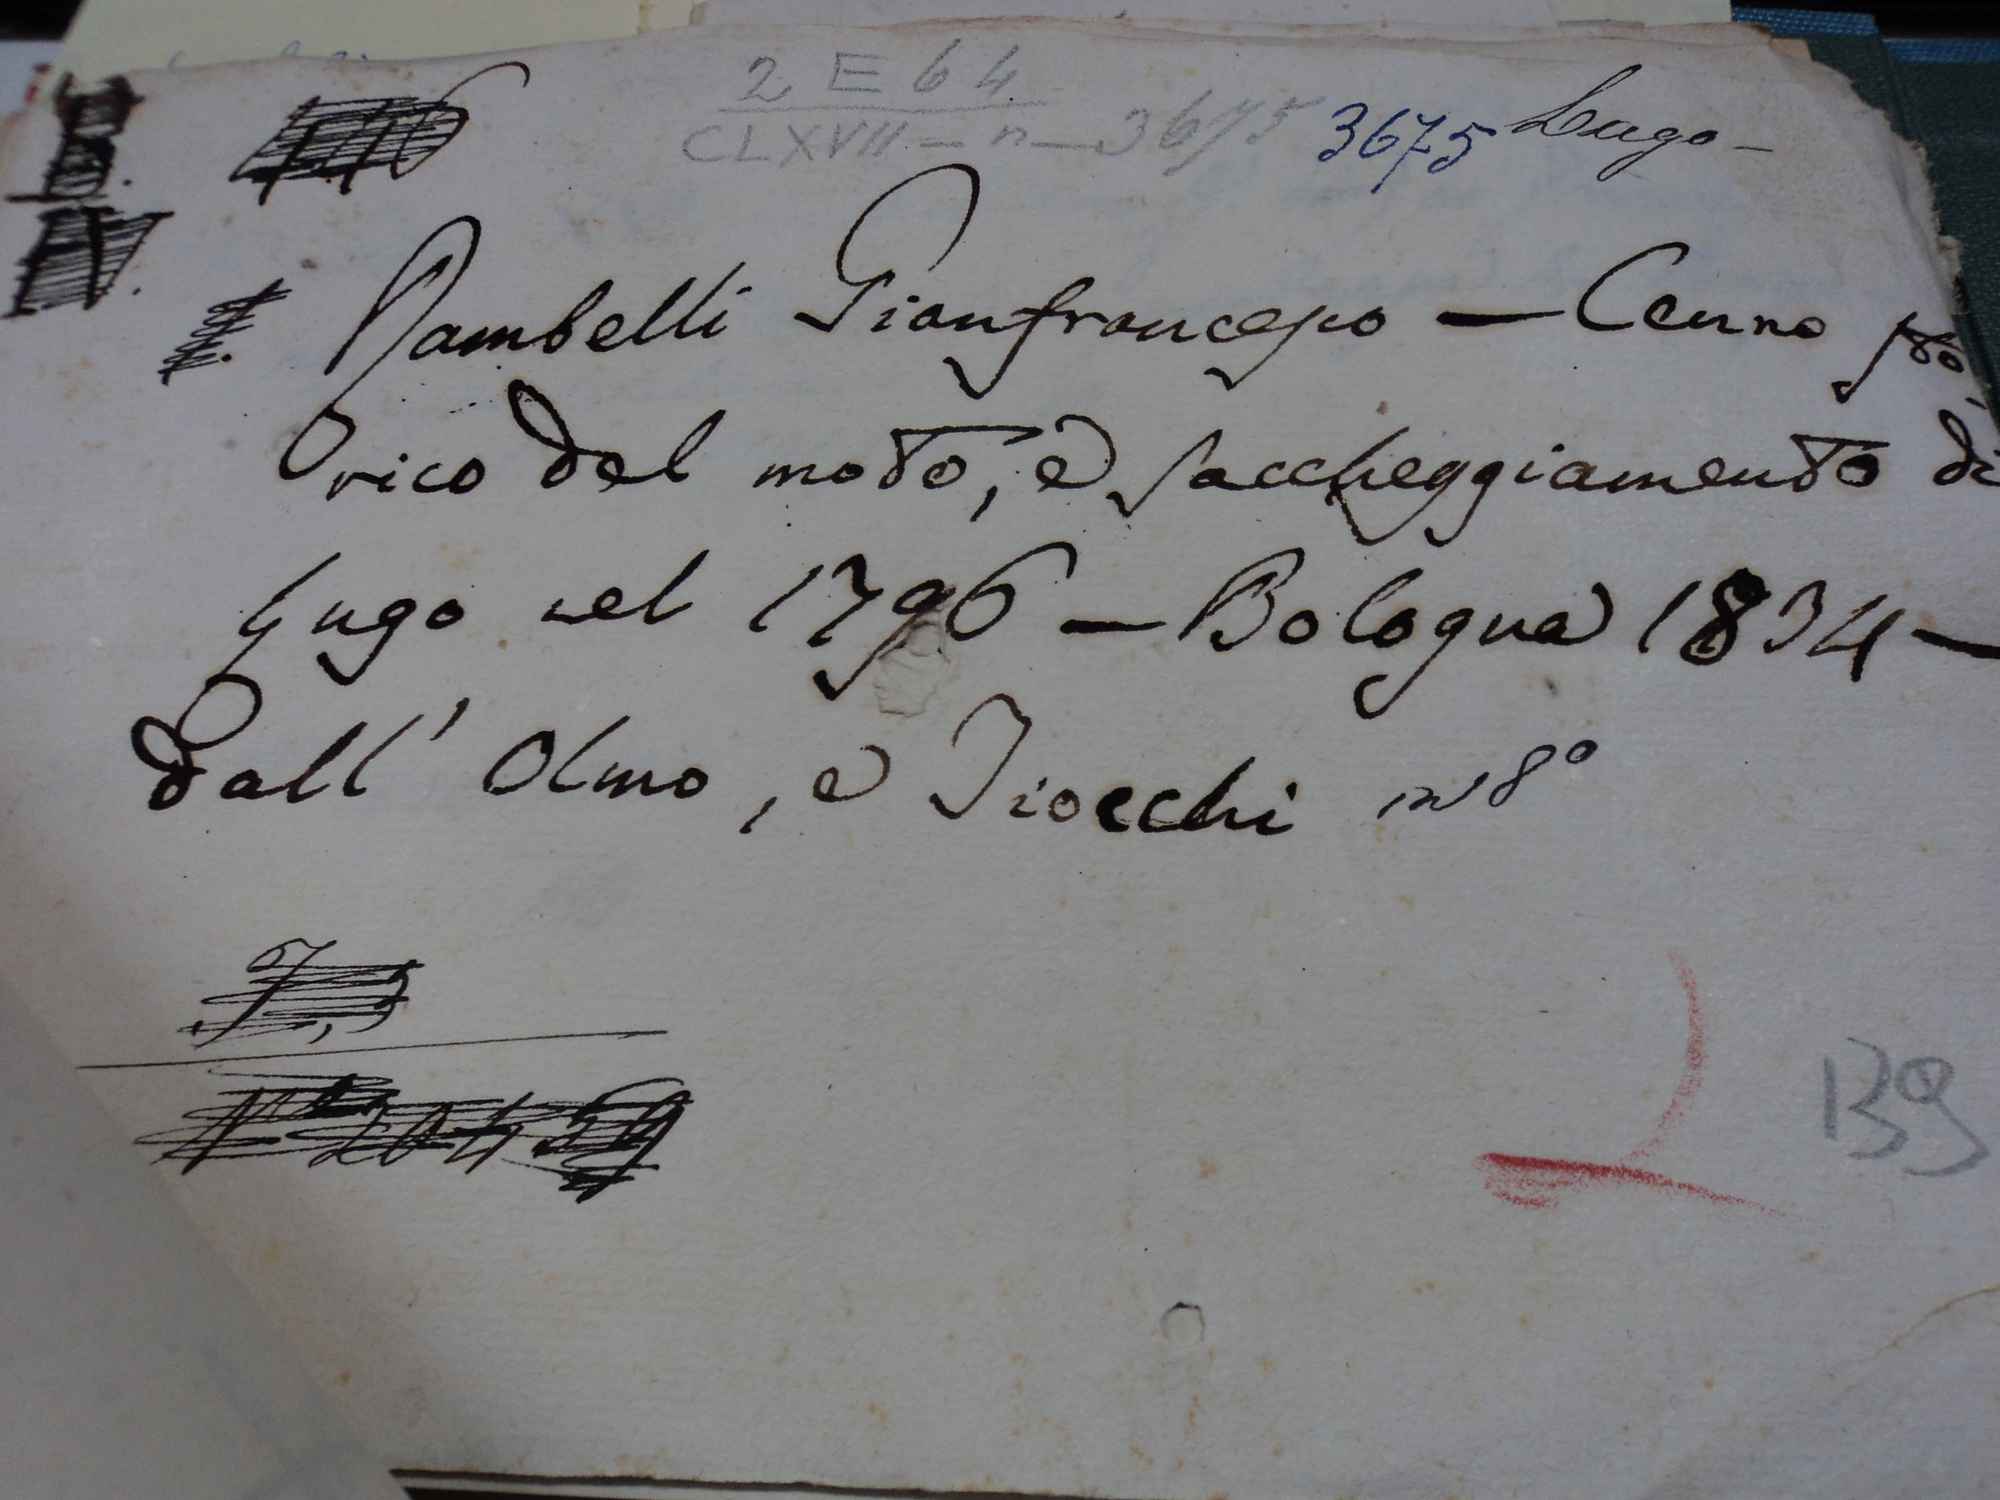 2 E 64
CLXVII - n - 3675 3675 Lugo -
116
Rambelli Gianfrancesco - Cenno sto,
rico del moto, e saccheggiamento di
Lugo nel 1796 - Bologna 1834 -
dall' Olmo, e Tiocchi in 8°
7,5
N° 20459
139